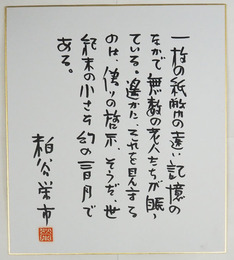 一枚の紙幣の遠い記憶の
なかで無数の老人たちが賑っ
ている。遙かな、それを見するも
のは、偽りの啓示、そうだ、世
紀末の小さな幻の三日月で
ある。
粕谷栄市